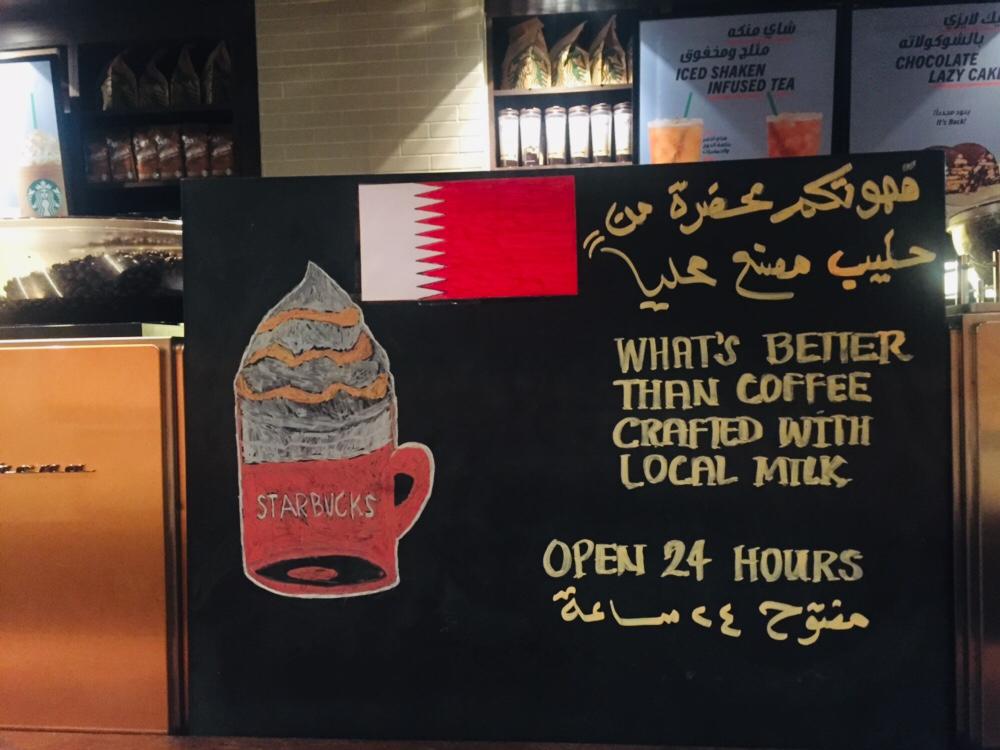 شاي منكه
مثلج ومخفوق
ICED SHAKEN
INFUSED TEA
بالشوكولاته
CHOCOLATE
LAZY CAKE
It's Back!
قهوتكم محضرة من
حليب مصنع محلياً
WHAT'S BETTER
THAN COFFEE
CRAFTED WITH
LOCAL MILK
STARBUCKS
OPEN 24 HOURS
مفتوح ٢٤ ساعة